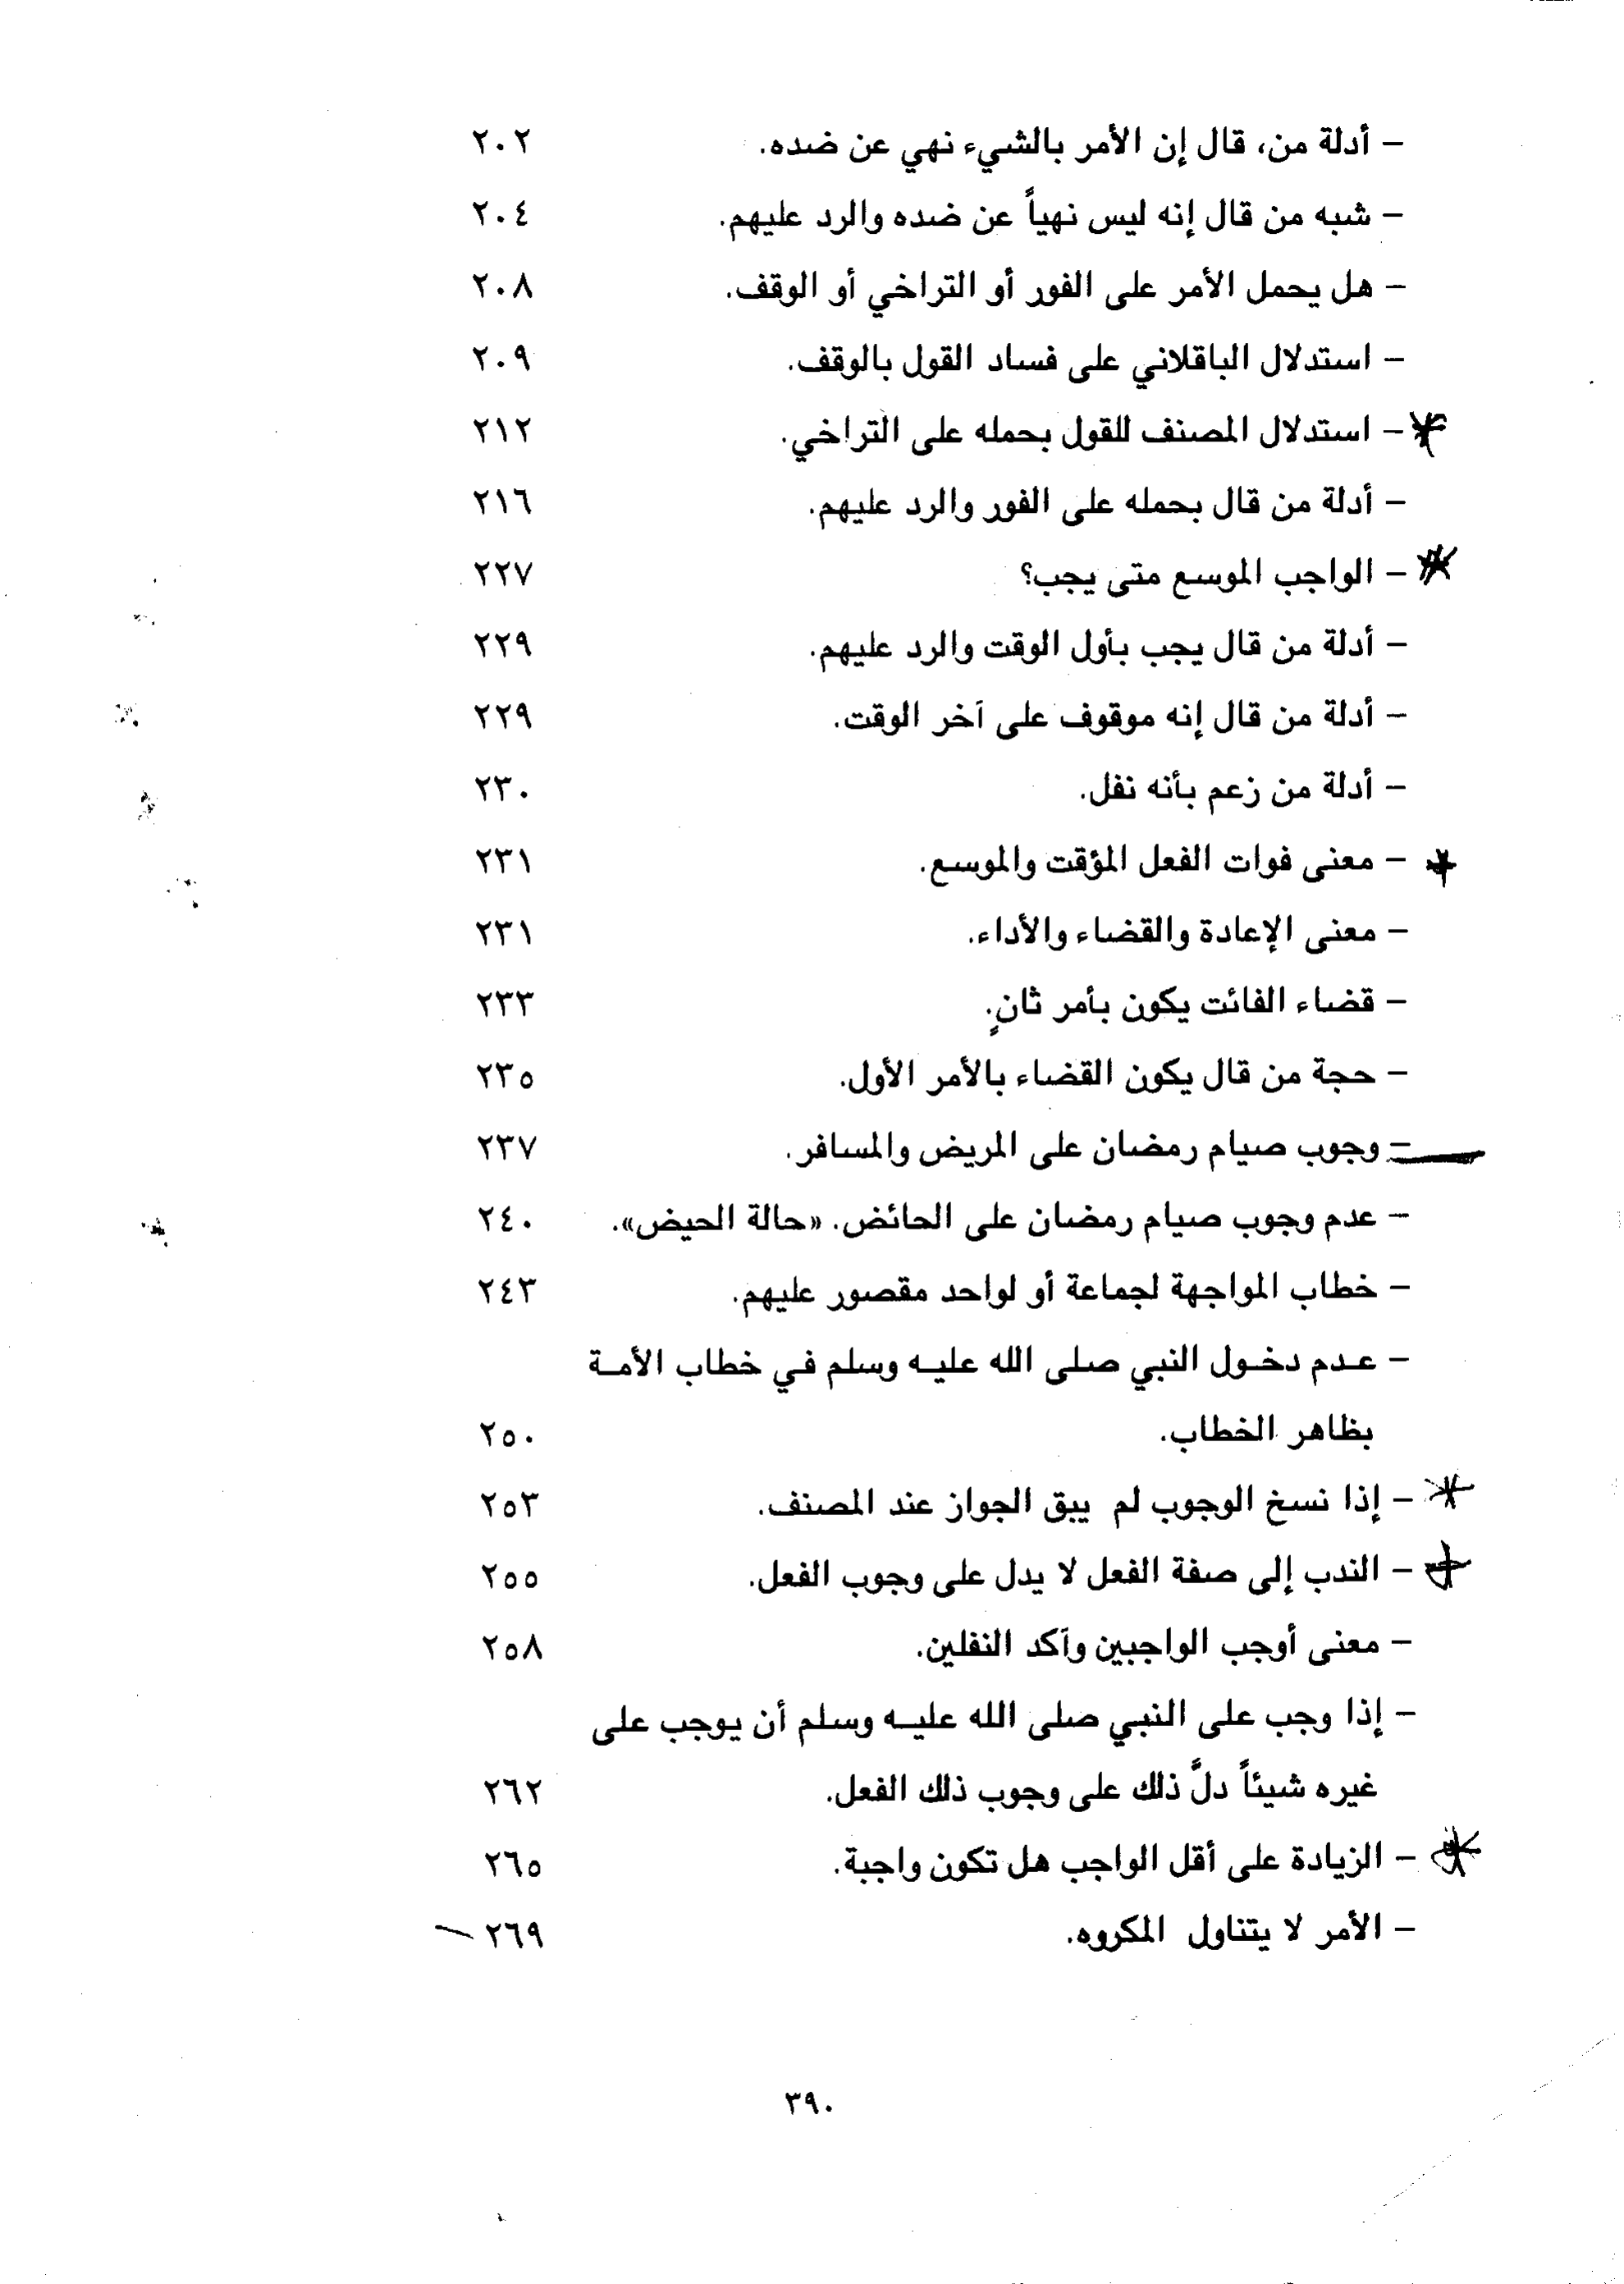 – أدلة من، قال إن الأمر بالشيء نهي عن ضده. ٢٠٢
– شبه من قال إنه ليس نهياً عن ضده والرد عليهم. ٢٠٤
– هل يحمل الأمر على الفور أو التراخي أو الوقف. ٢٠٨
– استدلال الباقلاني على فساد القول بالوقف. ٢٠٩
– استدلال المصنف للقول بحمله على التراخي. ٢١٢
– أدلة من قال بحمله على الفور والرد عليهم. ٢١٦
– الواجب الموسع متى يجب؟ ٢٢٧
– أدلة من قال يجب بأول الوقت والرد عليهم. ٢٢٩
– أدلة من قال إنه موقوف على آخر الوقت. ٢٢٩
– أدلة من زعم بأنه نفل. ٢٣٠
– معنى فوات الفعل المؤقت والموسع. ٢٣١
– معنى الإعادة والقضاء والأداء. ٢٣١
– قضاء الفائت يكون بأمر ثانٍ. ٢٣٣
– حجة من قال يكون القضاء بالأمر الأول. ٢٣٥
– وجوب صيام رمضان على المريض والمسافر. ٢٣٧
– عدم وجوب صيام رمضان على الحائض. «حالة الحيض». ٢٤٠
– خطاب المواجهة لجماعة أو لواحد مقصور عليهم. ٢٤٣
– عـدم دخـول النبي صلى الله عليـه وسلم في خطاب الأمـة
بظاهر الخطاب. ٢٥٠
– إذا نسخ الوجوب لم يبق الجواز عند المصنف. ٢٥٣
– الندب إلى صفة الفعل لا يدل على وجوب الفعل. ٢٥٥
– معنى أوجب الواجبين وآكد النفلين. ٢٥٨
– إذا وجب على النبي صلى الله عليـه وسلم أن يوجب على
غيره شيئاً دلَّ ذلك على وجوب ذلك الفعل. ٢٦٢
– الزيادة على أقل الواجب هل تكون واجبة. ٢٦٥
– الأمر لا يتناول المكروه. ٢٦٩
٣٩٠